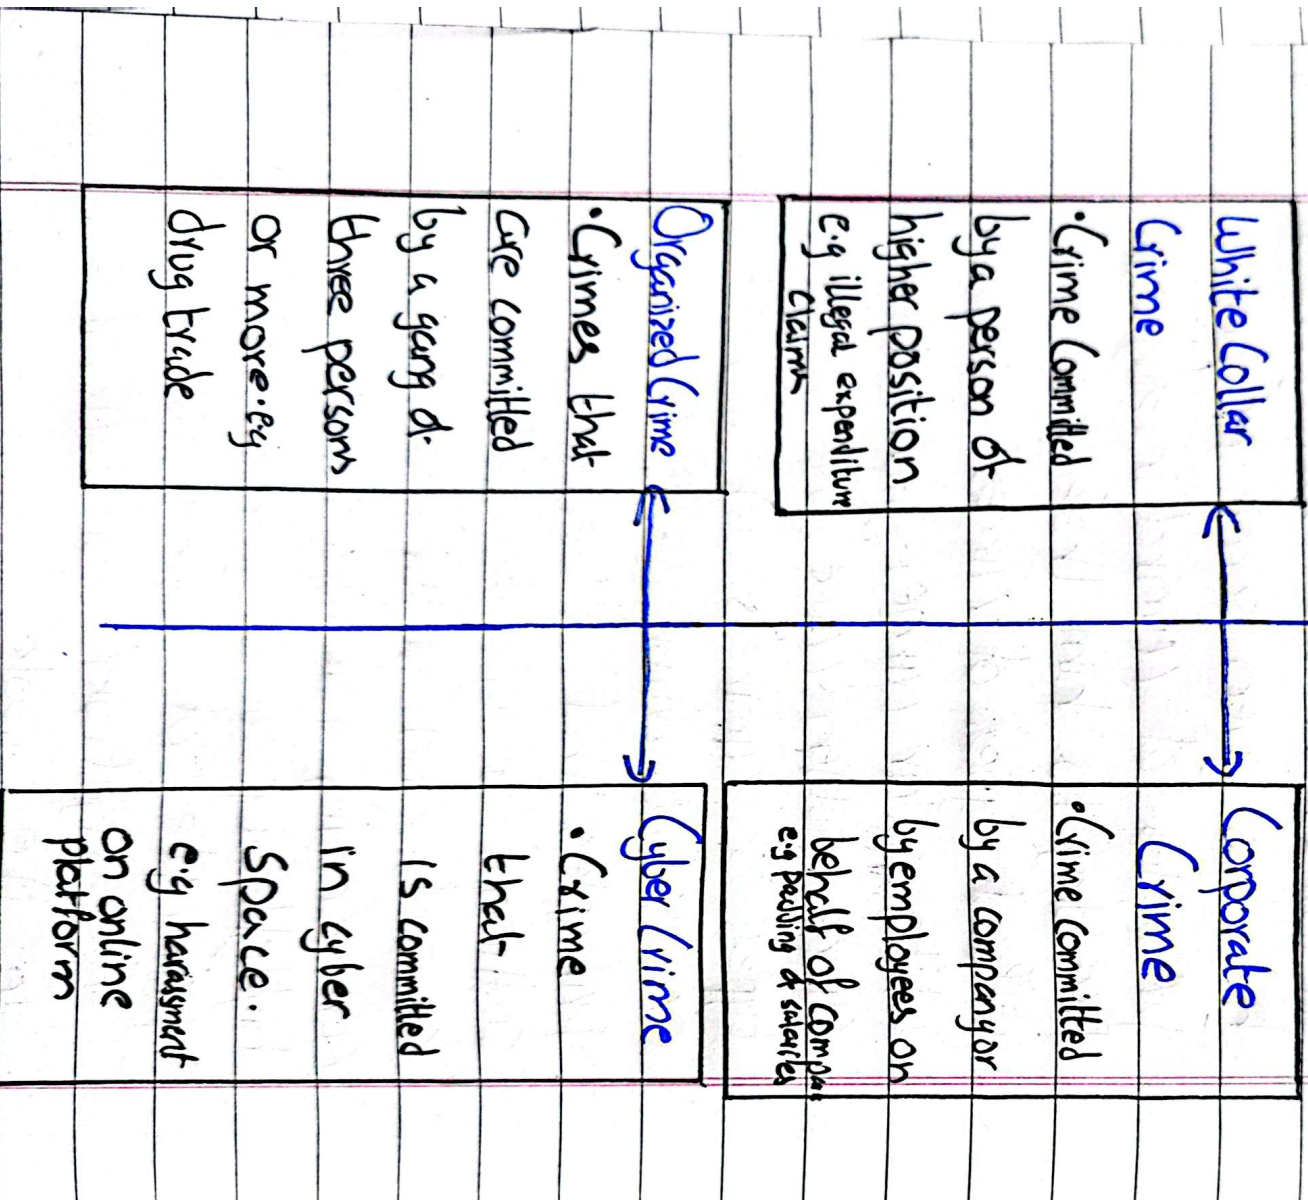 White Collar
Crime
• Crime Committed
by a person of
higher position
e.g illegal expenditure
claims
Corporate
Crime
• Crime committed
by a company or
by employees on
behalf of
e.g of salaries
Organized Crime
• Crimes that
are committed
by a gang of
three persons
or more. e.g
drug trade
Cyber Crime
• Crime
that
is committed
in cyber
space.
e.g harassment
on online
platform